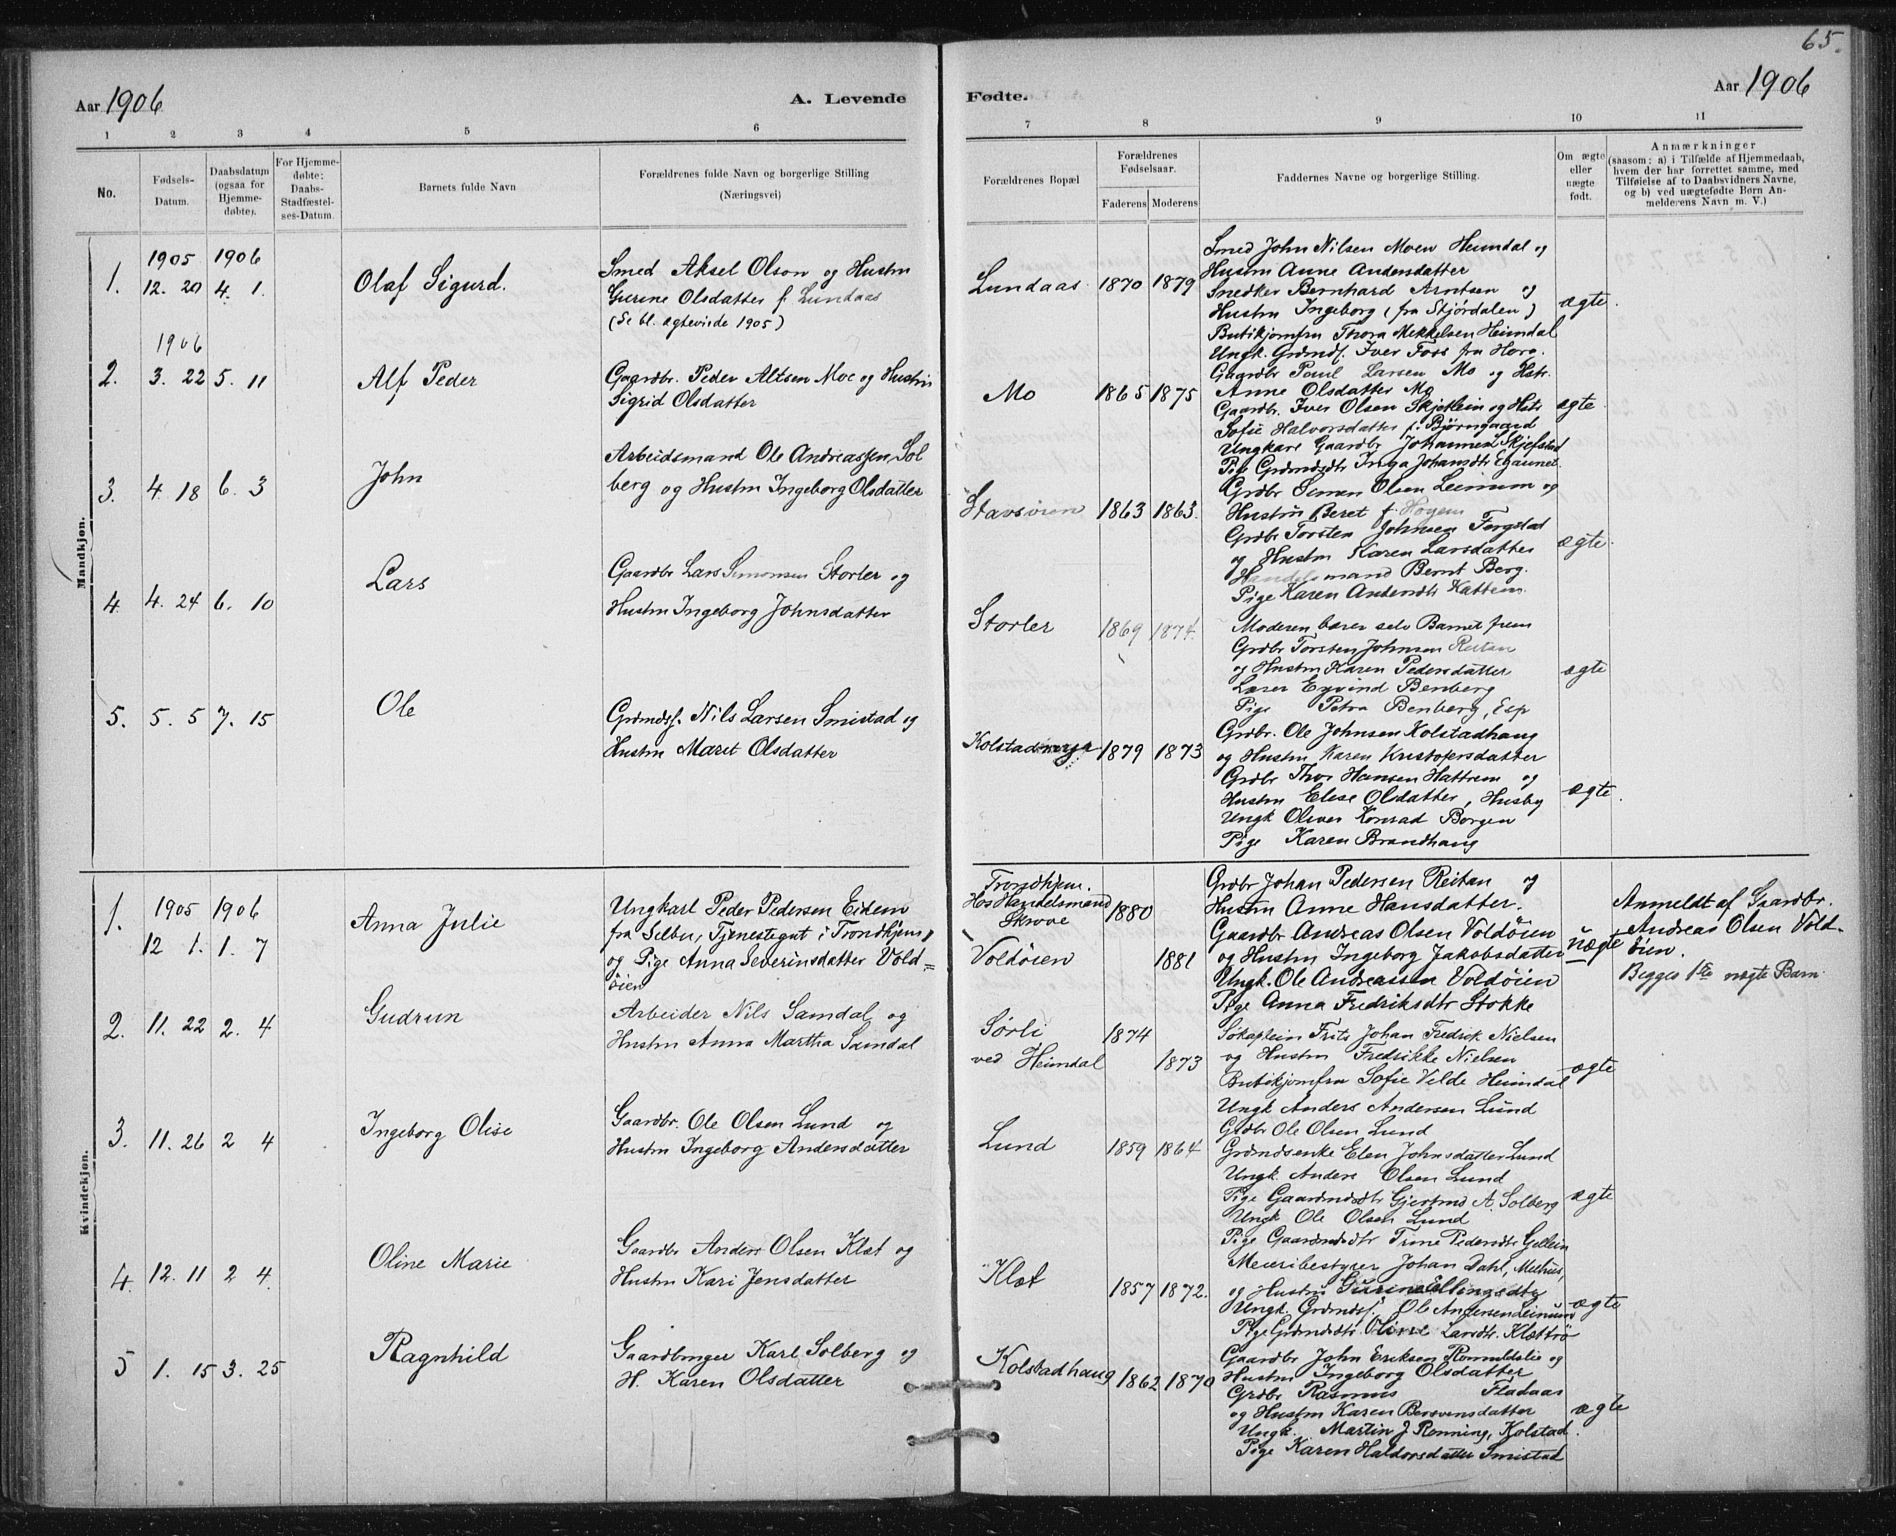 65.
Aar 1906
A. Levende
Fødte.
Aar 1906
1 2 3 4 5 6
7 8 9 10 11
No.
Fødsels-Datum.
Daabsdatum (ogsaa for Hjemmedøbte).
For Hjemmedøbte: Daabs-Stadfæstelses-Datum.
Barnets fulde Navn
Forældrenes fulde Navn og borgerlige Stilling
(Næringsvei)
Forældrenes Bopæl
Forældrenes Fødselsaar.
Faderens Moderens
Faddernes Navne og borgerlige Stilling.
Om ægte eller uægte født.
Anmærkninger
(saasom: a) i Tilfælde af Hjemmedaab,
hvem der har forrettet samme, med
Tilføielse af to Daabsvidners Navne,
og b) ved uægtefødte Børn Anmelderens Navn m. V.)
Mandkjøn.
1905 1906
1. 12. 20 4. 1. Olaf Sigurd.
Smed Aksel Olson og Hustru
Gurine Olsdatter f. Lundaas
(Se bl. ægteviede 1905)
Lundaas 1870 1879
Smed John Nilsen Moen Heimdal og
Hustru Anne Andersdatter
Snedker Bernhard Arntsen og
Hustru Ingeborg (fra Stjørdalen)
Butikjomfru Thora Mekkelsen Heimdal
Ungk. Grdmdsf. Iver Foss fra Horg.
ægte.
1906
2. 3. 22 5. 11 Alf Peder
Gaardbr. Peder Altsen Moe og Hustru
Sigrid Olsdatter
Mo 1865 1875
Gaardbr Poul Larsen Mo og Hstr.
Anne Olsdatter Mo
Gaardbr. Iver Olsen Skjetlein og Hstr
Sofie Halvorsdatter f. Bjørngaard
Ungkarl Gaardbr Johannes Skjefstad
Pige Grdmdsdtr Inga Johansdtr Egaunet
ægte.
3. 4. 18 6. 3 John
Arbeidsmand Ole Andreassen Sol
berg og Hustru Ingeborg Olsdatter
Stavsøien 1863 1863.
Grdbr Simon Olsen Leinum og
Hustru Beret f. Høyem
Grdbr Torsten Johnsen Forgstad
og Hustru Karen Larsdatter
Handelsmand Bernt Berg.
Pige Karen Andersdtr Kattem.
ægte.
4. 4. 24 6. 10 Lars
Gaardbr Lars Simonsen Storler og
Hustru Ingeborg Johnsdatter
Storler 1869 1874.
Moderen bærer selv Barnet frem
Grdbr Torsten Johnsen Reitan
og Hustru Karen Pedersdatter
Lærer Eyvind Benberg
Pige Petra Benberg, Esp
ægte
5. 5. 5 7. 15 Ole
Grdmdsf. Nils Larsen Smistad og
Hustru Marit Olsdatter
1879 1873
Grdbr. Ole Johnsen Kolstadhaug
og Hustru Karen Kristofersdatter
Grdbr Thor Hansen Hattrem og
Hustru Elise Olsdatter, Husby
Ungk Oliver Konrad Borgen
Pige Karen Brandhaug
ægte.
Kvindekjøn.
1905 1906
1. 12 1. 1. 7 Anna Julie
Ungkarl Peder Pedersen Eidem
fra Selbu, Tjenestegut i Trondhjem,
og Pige Anna Severinsdatter Vold=
øien
Trondhjem.
Hos Handelsmand
Skrove 1880
Voldøien 1881
Grdbr Johan Pedersen Reitan og
Hustru Anne Hansdatter.
Gaardbr Andreas Olsen Voldøien
og Hustru Ingeborg Jakobsdatter
Ungk. Ole Andreassen Voldøien
Pige Anna Fredriksdtr Stokke
uægte
Anmeldt af Gaardbr.
Andreas Olsen Vold-
øien.
Begges 1ste uægte Barn
2. 11. 22 2. 4 Gudrun
Arbeider Nils Samdal og
Hustru Anna Martha Samdal
Sørli 1874
ved Heimdal 1873
Søkaptein Frits Johan Fredrik Nielsen
og Hustru Fredrikke Nielsen
Butikjomfru Sofie Velde Heimdal
Ungk Anders Andersen Lund
ægte
3. 11. 26 2 4 Ingeborg Olise
Gaardbr. Ole Olsen Lund og
Hustru Ingeborg Andersdatter
Lund 1859 1864
Grdbr Ole Olsen Lund
Grdmdsenke Elen Johnsdatter Lund
Ungk. Anders Olsen Lund
Pige Gaardmdsdtr Gjertrud A. Solberg
Ungk Ole Olsen Lund
Pige Gaardmdsdtr Trine Pedersdtr Gellein
ægte
4. 12. 11 2 4. Oline Marie
Gaardbr Anders Olsen Klæt og
Hustru Kari Jensdatter
Klæt 1857 1872.
Meieribestyrer Johan Dahl, Melhus,
og Hustru Gurine Ellingsdtr
Ungk. Grdmdsf. Ole Andersen Leinum
Pige Grdmdsdtr. Oline Larsdtr. Klættrø
ægte
5 1. 15 3. 25 Ragnhild
Gaardbruger Karl Solberg og
H. Karen Olsdatter
Kolstadhaug 1862 1870
Gaardbr John Eriksen Romuldslie og
Hustru Ingeborg Olsdatter
Grdbr Rasmus Fladaas
og Hustru Karen Berovensdatter
Ungk. Martin J Rønning, Kolstad
Pige Karen Haldorsdatter Smistad
ægte.